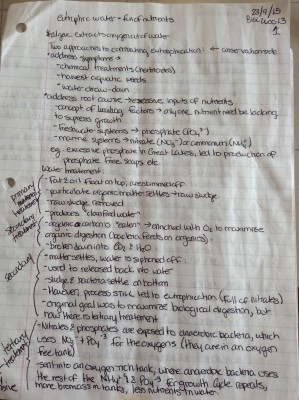 23/9/15
Biol 2003
1
eutrophic water - full of nutrients
algae extracts oxygen at water
Two approaches to combatting eutrophication: ← conservation side
*address symptoms →
- chemical treatments (herbicides)
- harvest aquatic weeds
- water draw-down
*address root cause → excessive inputs of nutrients
- concept of limiting factors → only one nutrient need be lacking
to supress growth
- freshwater systems → phosphate (PO4-3)
- marine systems → nitrate (NO3-) or ammonium (NH4+)
eg. excessive phosphate in Great Lakes, led to production of
phosphate free soaps etc.
Water treatment:
primary treatment
- Fat & oil float on top, are skimmed off
- particulate organic matter settles → raw sludge
- raw sludge removed
- produces "clarified water"
secondary treatment
- organic carbon is "eaten" → air mixed with O2 to maximise
organic digestion (bacteria feeds on organics)
- broken down into CO2 & H2O
secondary
- matter settles, water is siphoned off
- used to released back into water
- sludge & bacteria settle on bottom
- However, process still led to eutrophication (full of nitrates)
- original goal was to maximise biological digestion, but
now there is tertiary treatment
tertiary treatment
- Nitrates & phosphates are exposed to anaerobic bacteria, which
uses NO3- + PO4-3 for the oxygens (they are in an oxygen
free tank)
- sent into an oxygen rich tank, where anaerobic bacteria uses
the rest of the NH4+ & PO4-3 for growth. Cycle repeats,
more biomass in tanks, less nutrients in water